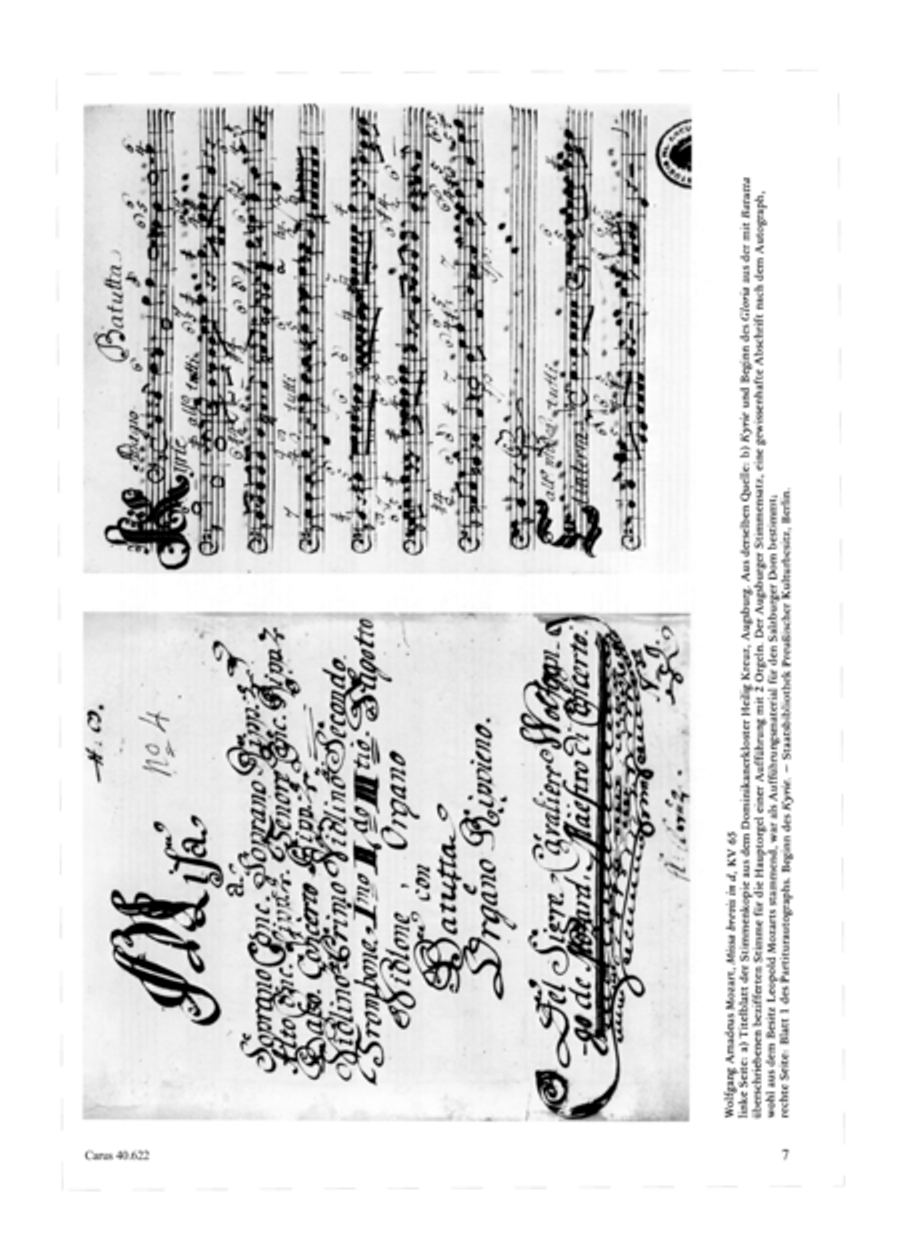 Batutta
Adagio
Kyrie
allo tutti
tutti
allo
tutti
No 4
Missa
a
Soprano Conc. Soprano Ripp.
Alto Conc. Ripp. Tenore Conc. Ripp.
Basso Concerto Ripp.
Violino Primo Violino Secondo
Trombone Imo II do III tio. Fagotto
Violone, Organo
con
Batutta
e
Organo Ripieno.
Del Sigre. Cavaliere Wolfgan-
go de Mozard. Maestro di Concerto.
Wolfgang Amadeus Mozart, Missa brevis in d, KV 65
linke Seite: a) Titelblatt der Stimmenkopie aus dem Dominikanerkloster Heilig Kreuz, Augsburg. Aus derselben Quelle: b) Kyrie und Beginn des Gloria aus der mit Batutta
überschriebenen bezifferten Stimme für die Hauptorgel einer Aufführung mit 2 Orgeln. Der Augsburger Stimmensatz, eine gewissenhafte Abschrift nach dem Autograph,
wohl aus dem Besitz Leopold Mozarts stammend, war als Aufführungsmaterial für den Salzburger Dom bestimmt;
rechte Seite: Blatt 1 des Partiturautographs. Beginn des Kyrie. – Staatsbibliothek Preußischer Kulturbesitz, Berlin.
Carus 40.622
7